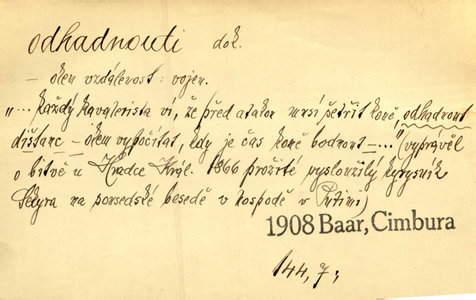 odhadnouti dok.
– okem vzdálenost: vojen.
„... Každý kavalerista ví, že před atakou musí šetřit koně, odhadnout
distanc – okem vypočítat, kdy je čas koně bodnout – ..." (vyprávěl
o bitvě u Hradce Král. 1866 prožité vysloužilý kyrysník
Sekyra na sousedské besedě v hospodě v Putimi)
1908 Baar, Cimbura
144, 7;